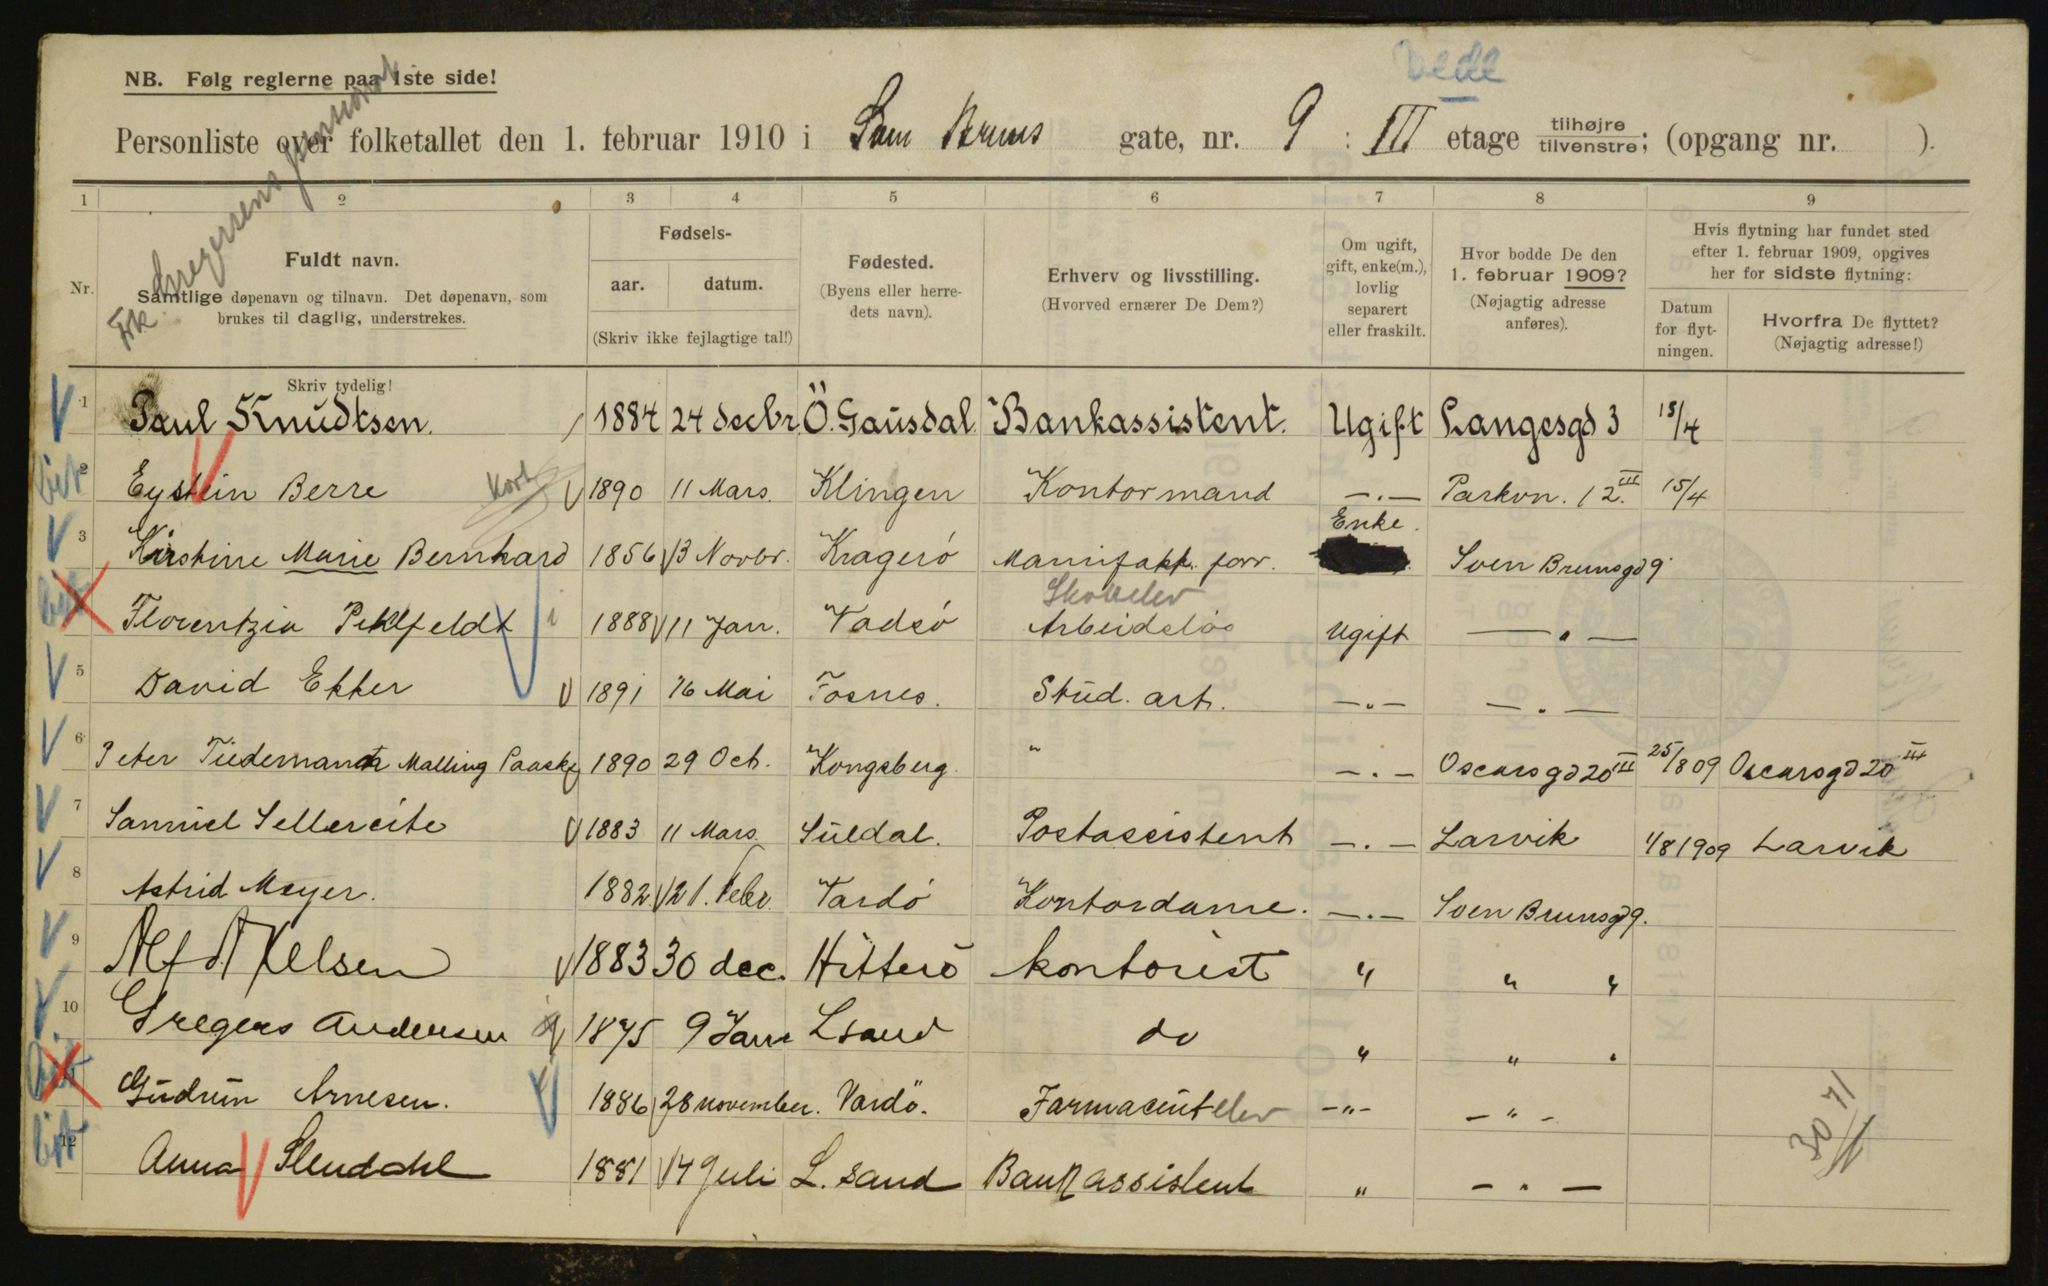 Vedl
NB. Følg reglerne paa 1ste side!
Personliste over folketallet den 1. februar 1910 i Sven Bruns gate, nr. 9 : III etage tilhøjre tilvenstre; (opgang nr. ).
Frk. Gregersens pensionat
1 2 3 4 5 6 7 8 9
Nr.
Fuldt navn.
Samtlige døpenavn og tilnavn. Det døpenavn, som
brukes til daglig, understrekes.
Skriv tydelig!
Fødsels-
aar. datum.
(Skriv ikke fejlagtige tal!)
Fødested.
(Byens eller herre-
dets navn).
Erhverv og livsstilling.
(Hvorved ernærer De Dem?)
Om ugift,
gift, enke(m.),
lovlig
separert
eller fraskilt.
Hvor bodde De den
1. februar 1909?
(Nøjagtig adresse
anføres).
Hvis flytning har fundet sted
efter 1. februar 1909, opgives
her for sidste flytning:
Datum
for flyt-
ningen.
Hvorfra De flyttet?
(Nøjagtig adresse!)
1 Paul Knudtsen. 1884 24 decbr. Ö. Gausdal. Bankassistent. Ugift Langesgd 3 15/4
2 Eystein Berre Kort 1890 11 Mars. Klingen Kontormand —.— Parkvn. 12 III 15/4
3 Kirstine Marie Bernhard 1856 13 Novbr. Kragerö Manufakt. forr. Enke. Sven Brunsgd 9
Florentzia Pehlfeldt 1888 11 Jan. Vadsö Arbeidslös Skoleelev Ugift — " —
5 David Ekker 1891 16 Mai Fosnes. Stud. art. —"— —.—
6 Peter Tiedemandt Malling Paaske 1890 29 Oct. Kongsberg. " —.— Oscarsgd 20 III 25/8 09 Oscarsgd 20 III
7 Samuel Selleveite 1883 11 Mars. Suldal. Postassistent —.— Larvik 1/8 1909 Larvik
8 Astrid Meyer. 1882. 21. Febr. Vardö Kontordame. —.— Sven Brunsgd 9.
9 Alf A Xelsen 1883 30 dec. Hitterö kontorist " " "
10 Gregers Andersen 1875 9 Jan Lsand do " " "
11 Gudrun Arnesen. 1886 28 november. Vardö. Farmaceutelev —"— —"—
12 Anna Slenddahl 1881 14 Juli L. sand Bankassistent " — " —
30 71